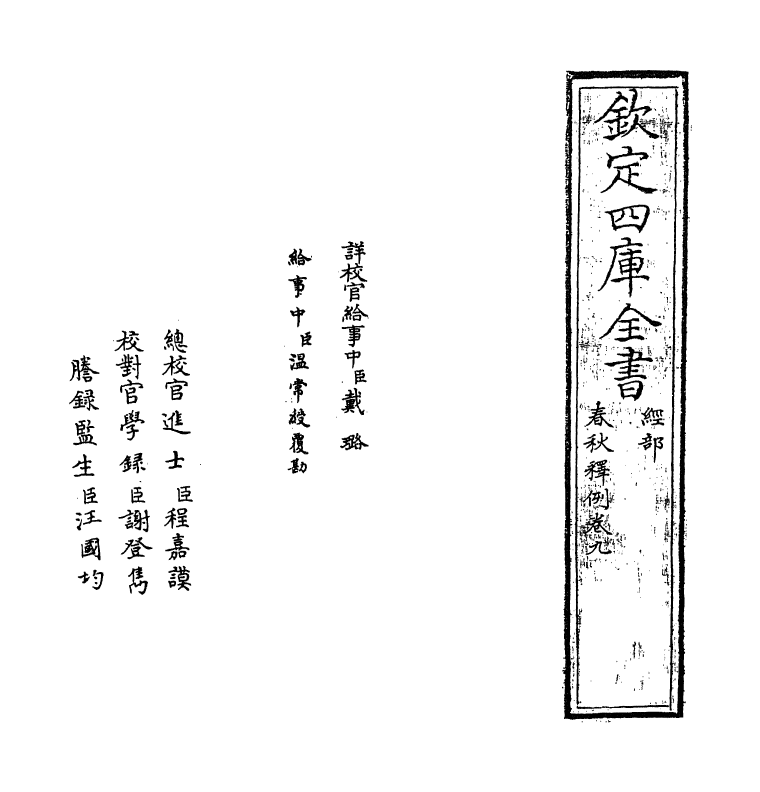 欽定四庫全書
經部
春秋釋例卷九
詳校官給事中臣戴璐
給事中臣溫常綬覆勘
總校官進士臣程嘉謨
校對官學錄臣謝登雋
謄錄監生臣汪國均